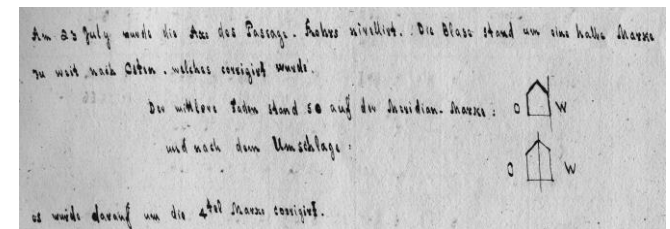 Am 23 July wurde die Axe des Passage-Rohrs nivellirt. Die Blase stand um eine halbe Marke
zu weit nach Osten, welches corrigirt wurde.
Der mittlere Faden stand so auf der Meridian-Marke: O W
und nach dem Umschlage: O W
es wurde darauf um die 4tel Marke corrigirt.